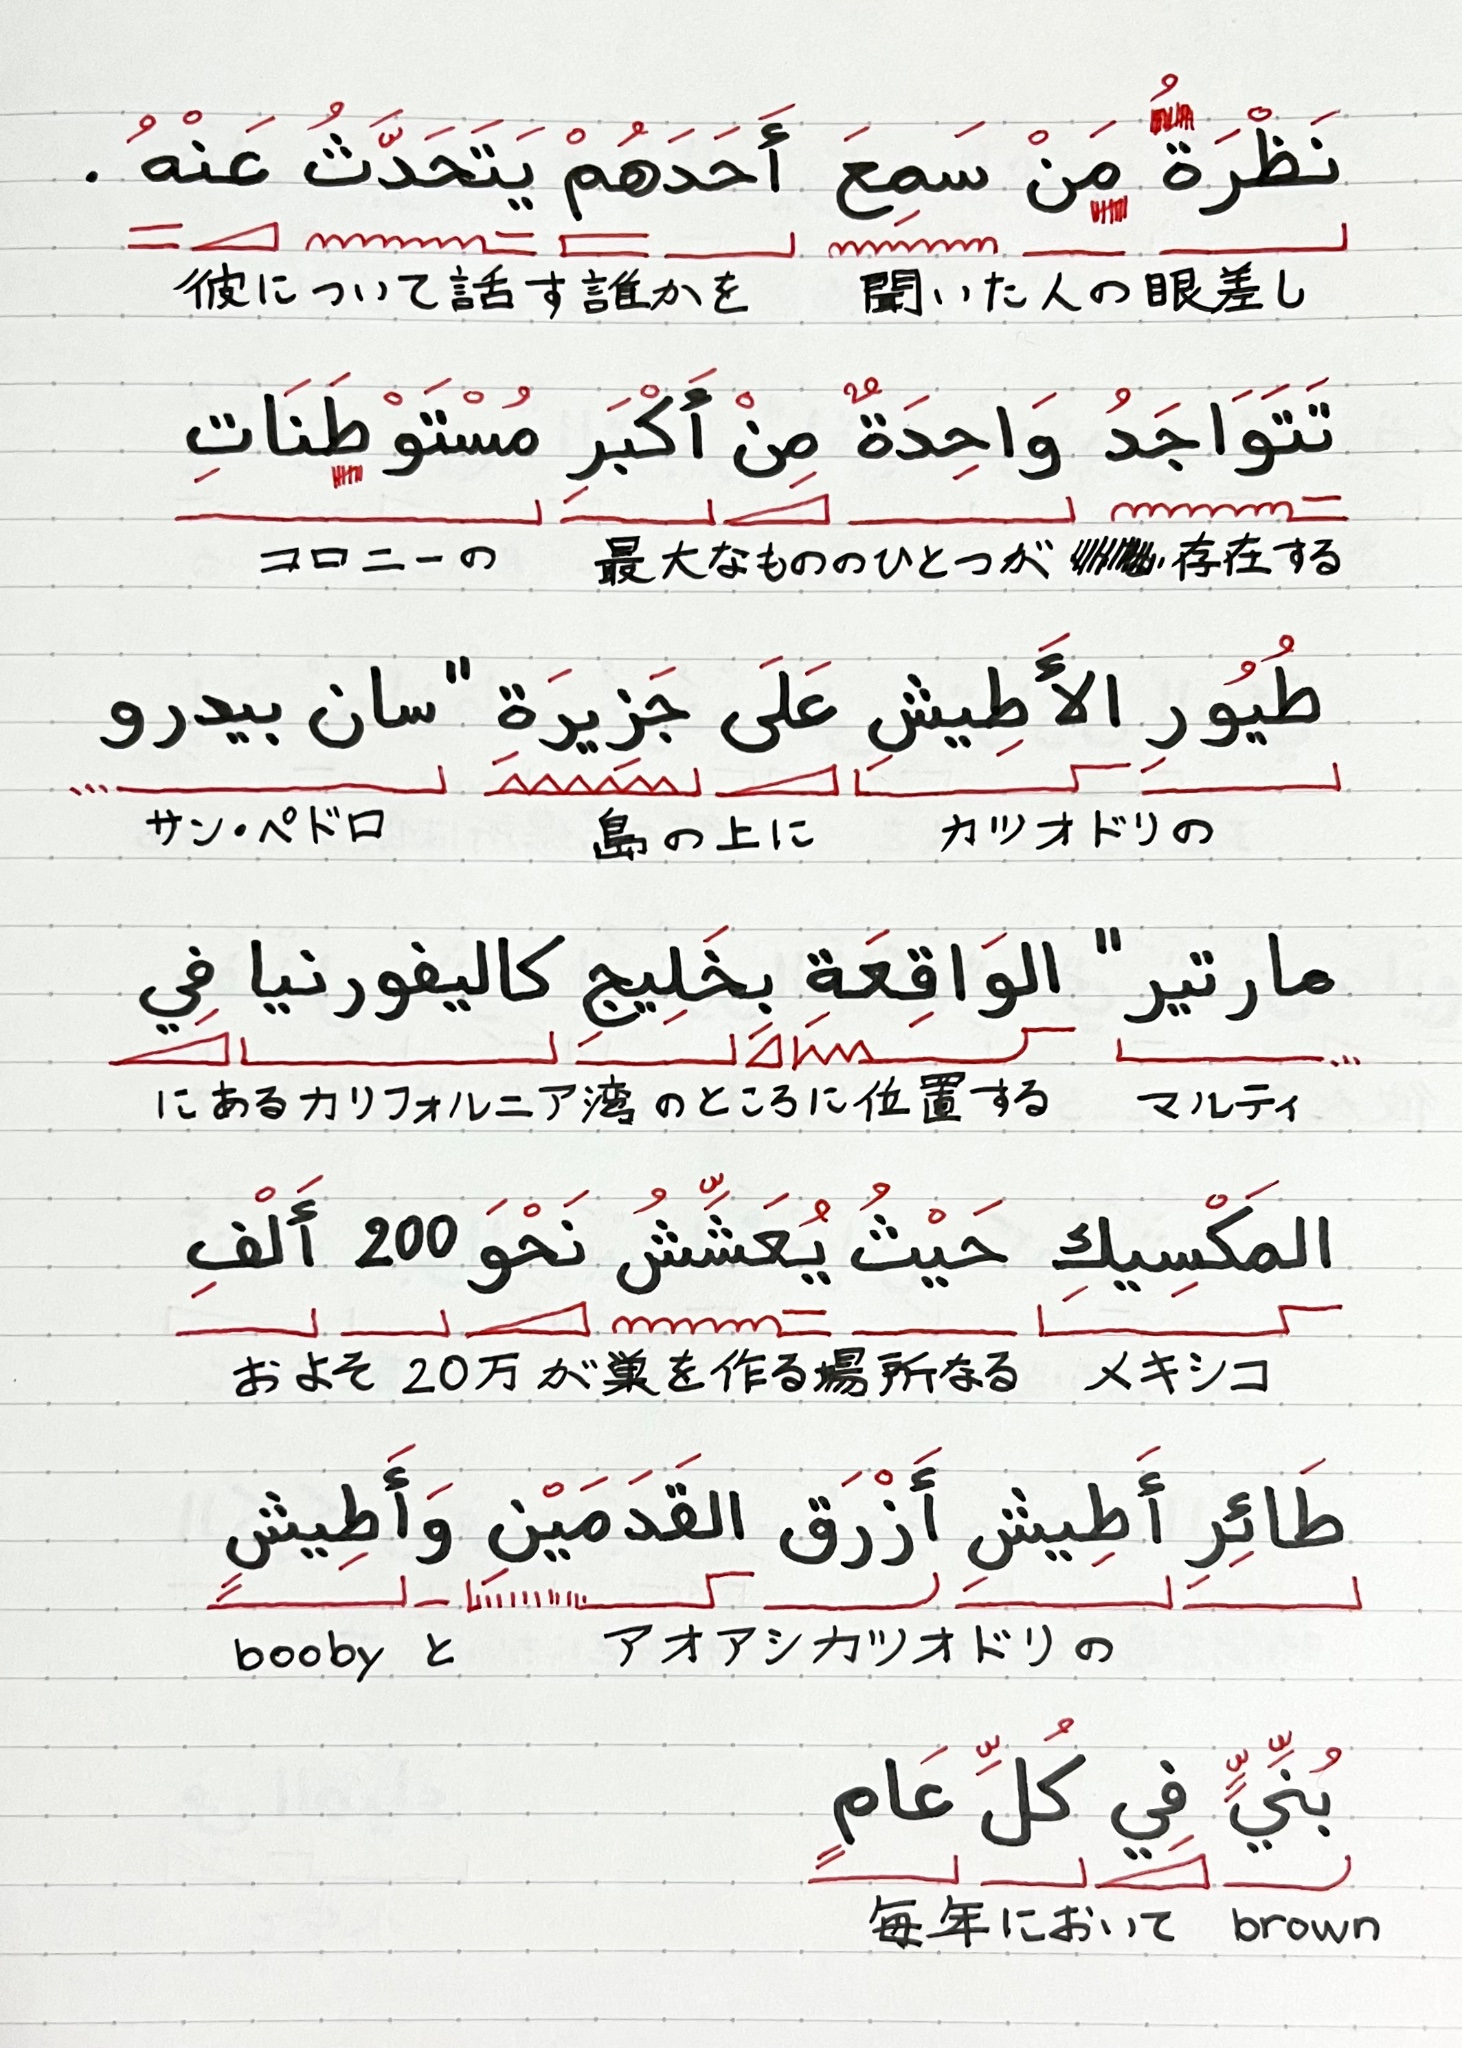 نَظْرَةُ مَنْ سَمِعَ أَحَدَهُمْ يَتَحَدَّثُ عَنْهُ .
彼について話す誰かを 聞いた人の眼差し
تَتَوَاجَدُ وَاحِدَةٌ مِنْ أَكْبَرِ مُسْتَوْطَنَاتِ
コロニーの 最大なもののひとつが 存在する
طُيُورِ الأَطِيشِ عَلَى جَزِيرَةِ "سان بيدرو
サン・ペドロ 島の上に カツオドリの
مارتير" الوَاقِعَةِ بِخَلِيجِ كاليفورنيا فِي
にあるカリフォルニア湾のところに位置する マルティ
المَكْسِيكِ حَيْثُ يُعَشِّشُ نَحْوَ 200 أَلْفِ
およそ20万が巣を作る場所なる メキシコ
طَائِرِ أَطِيشِ أَزْرَق القَدَمَيْنِ وَأَطِيشٍ
booby と アオアシカツオドリの
بُنِّيٍّ فِي كُلِّ عَامٍ
毎年において brown